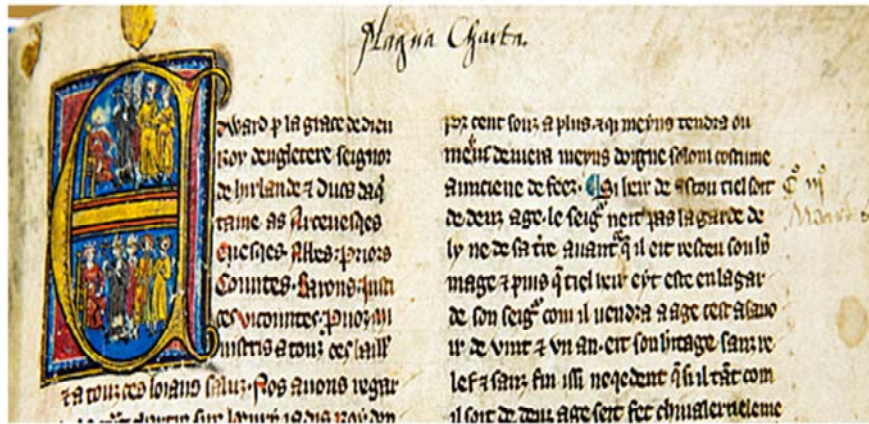 Magna Charta.
Edward p la grace de dieu
Roy dengletere seignor
de hirlande ⁊ Ducs daq̄
taine as Arceuesqes
Euesqes. Abbes. Priors
Countes. Barons. Justi
ces vicountes. Prouoz
nistris a touz ces baill
⁊ a touz ces loiaus saluz. Nos auons regar
por cent souz a plus. ⁊ qi meyns tendra ou
meins deuera meyns doigne solom custume
aunciene de feez. Si leir de ascou tiel soit
de deuz age. le seigr neit pas la garde de
ly ne de sa tre auant q̄ il eit resceu soun
mage ⁊ puis q̄ tiel heir eyt este en la gar
de son seigr com il uendra a age cest asauo
ir de vint ⁊ vn an. eit son heritage sanz re
lef ⁊ sanz fin issi neqedent q̄ si il tāt com
il soit de deuz age seit fet chiualer